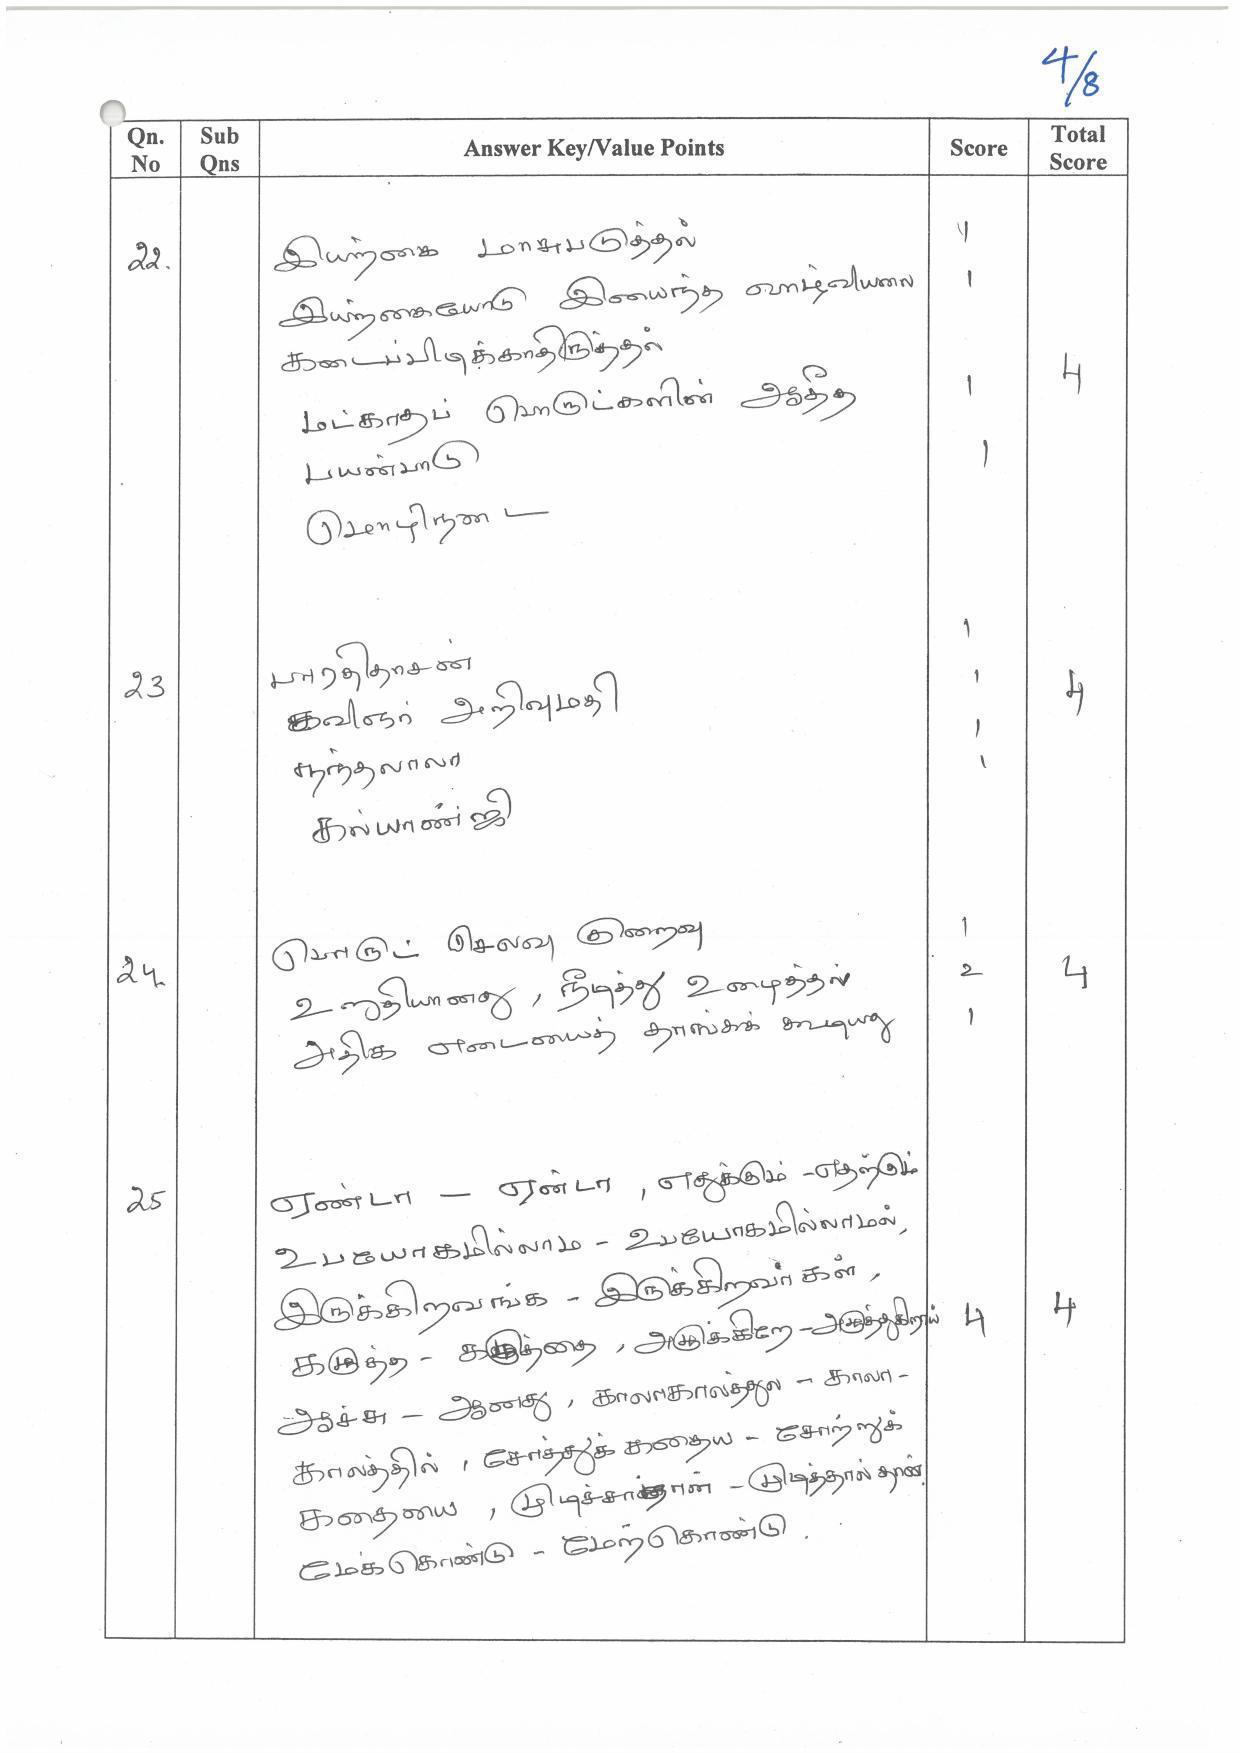 4/8
Qn. No | Sub Qns | Answer Key/Value Points | Score | Total Score
22. இயற்கை மாசுபடுத்தல் 1
இயற்கையோடு இயைந்த வாழ்வியலை 1
கடைப்பிடிக்காதிருத்தல் 4
மட்காதப் பொருட்களின் ஆதீத 1
பயன்பாடு 1
மொழிநடை —
23 பாரதிதாசன் 1
கவிஞர் அறிவுமதி 1 4
நந்தலாலா 1
கல்யாண்ஜி 1
24. பொருட் செலவு குறைவு 1
உறுதியானது, நீடித்து உழைத்தல் 2 4
அதிக எடையைத் தாங்கக் கூடியது 1
25 ஏண்டா – ஏன்டா, எதுக்கும் – எதற்கும்
உபயோகமில்லாம – உபயோகமில்லாமல்,
இருக்கிறவங்க – இருக்கிறவர்கள்,
கழுத்த – கழுத்தை, அறுக்கிறே – அறுத்துகிறாய் 4 4
ஆச்சு – ஆனது, காலாகாலத்துல – காலா-
காலத்தில், சோத்துக் கதைய – சோற்றுக்
கதையை, முடிச்சாத்தான் – முடித்தால் தான்
மேக்கொண்டு – மேற்கொண்டு.